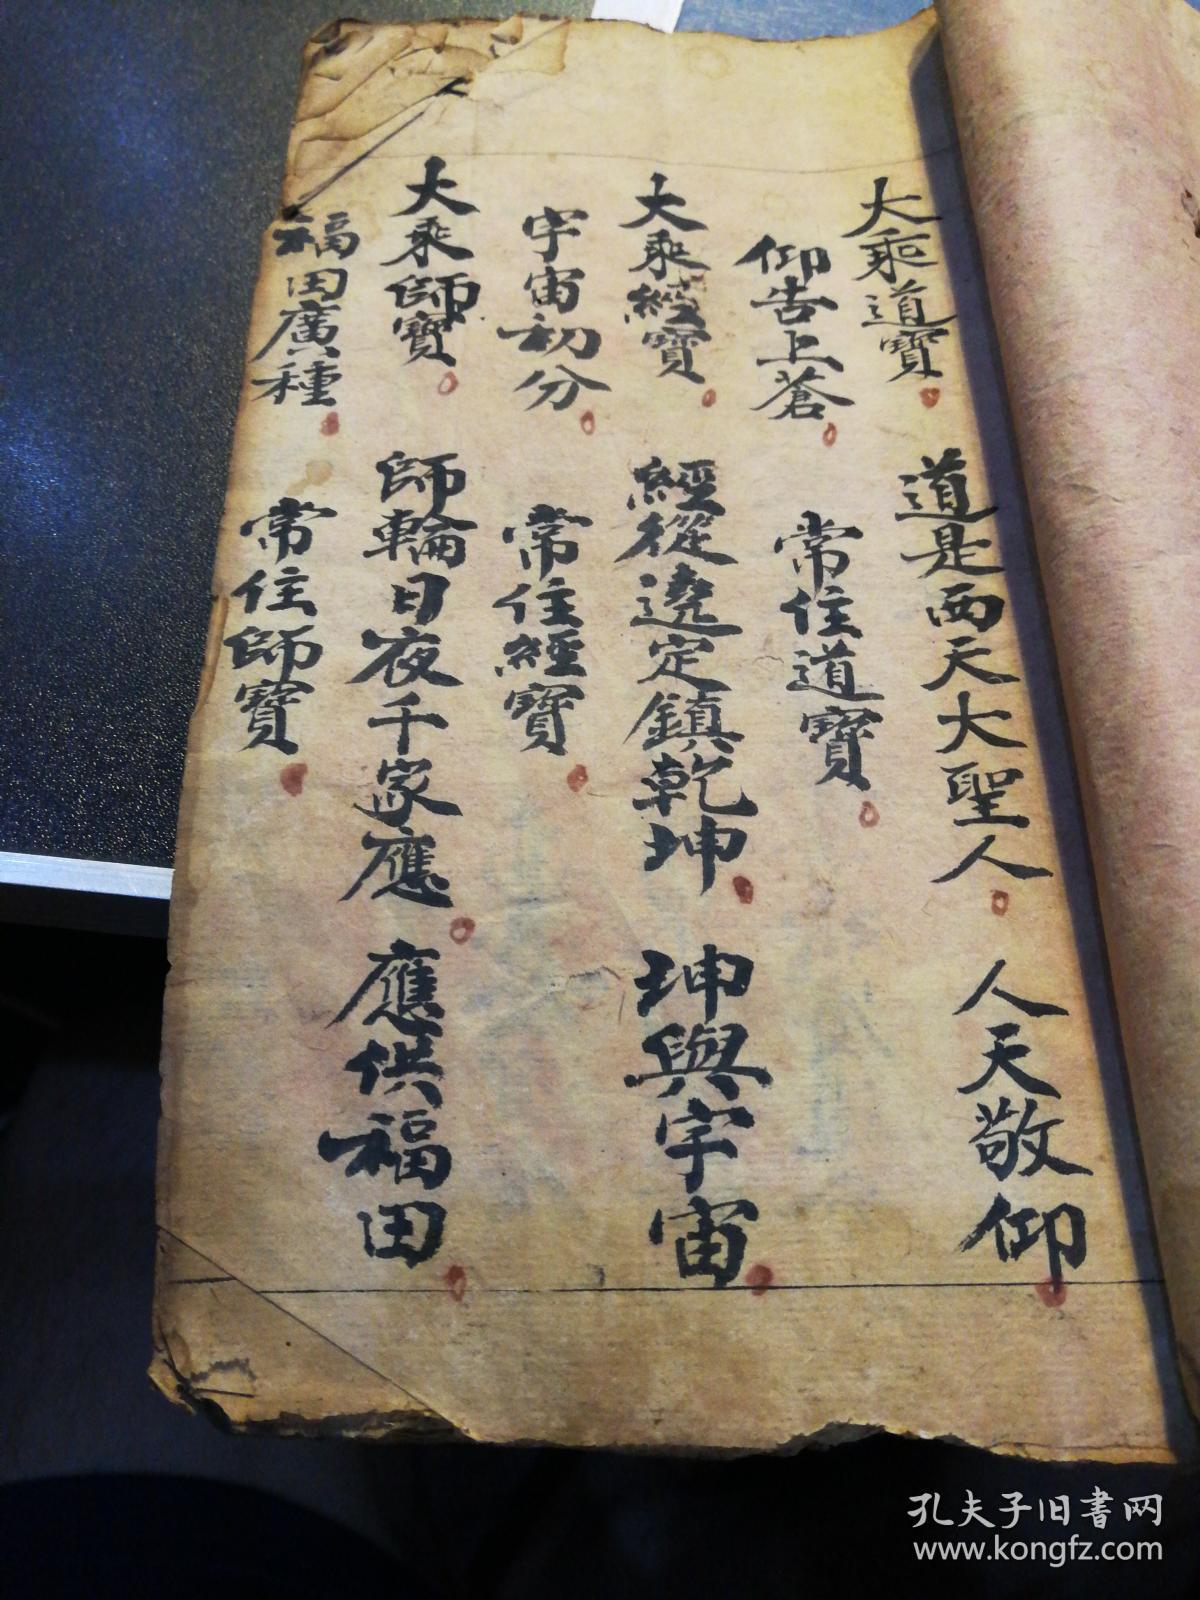 大乘道寳 道是西天大聖人 人天敬仰
仰告上蒼 常住道寳
大乘經寳 經從遶定鎮乾坤 坤與宇宙
宇宙初分 常住經寳
大乘師寳 師輪日夜千家應 應供福田
福田廣種 常住師寳
孔夫子旧书网
www.kongfz.com